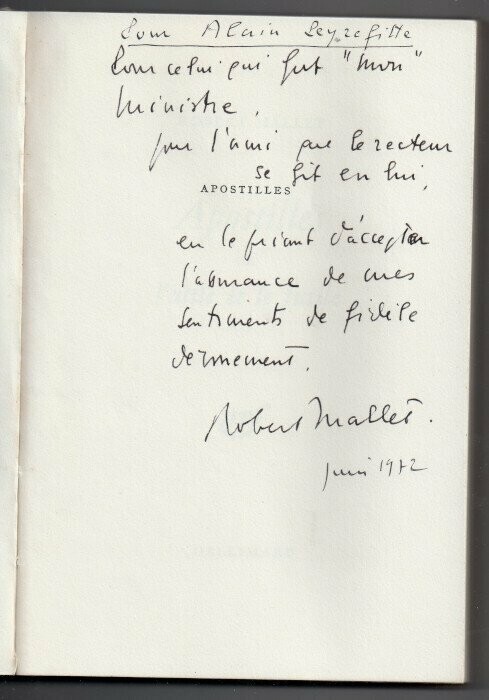 Pour Alain Peyrefitte
Pour celui qui fut "mon"
Ministre,
pour l'ami que le recteur
se fit en lui,
APOSTILLES
en le priant d'accepter
l'assurance de mes
sentiments de fidèle
dévouement.
Robert Mallet.
juin 1972